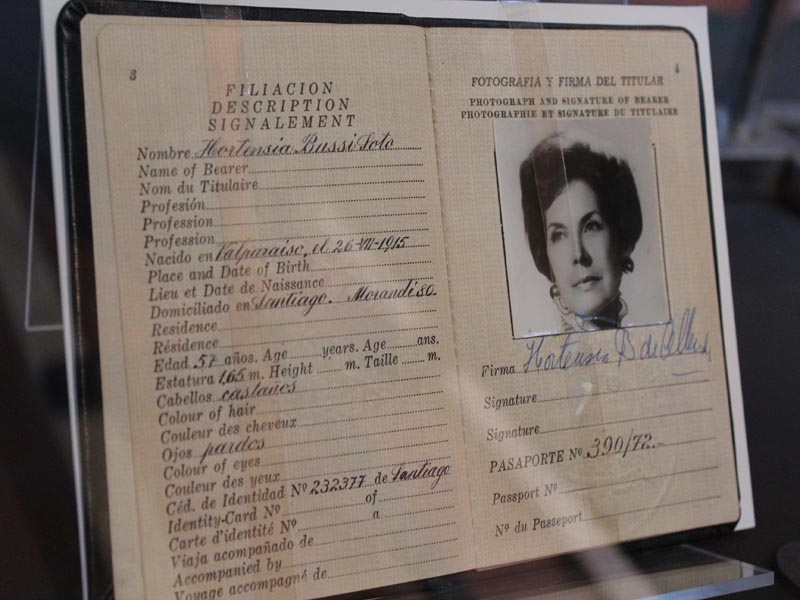 3
FILIACION
DESCRIPTION
SIGNALEMENT
Nombre Hortensia Bussi Soto
Name of Bearer
Nom du Titulaire
Profesión
Profession
Profession
Nacido en Valparaiso, el 26-VII-1915
Place and Date of Birth
Lieu et Date de Naissance
Domiciliado en Santiago. Morandi 80.
Residence
Résidence
Edad 57 años. Age years. Age ans.
Estatura 1,65 m. Height m. Taille m.
Cabellos castaños
Colour of hair
Couleur des cheveux
Ojos pardos
Colour of eyes
Couleur des yeux
Céd. de Identidad Nº 232377 de Santiago
Identity-Card Nº of
Carte d'identité Nº a
Viaja acompañado de
Accompanied by
Voyage accompagné de
4
FOTOGRAFIA Y FIRMA DEL TITULAR
PHOTOGRAPH AND SIGNATURE OF BEARER
PHOTOGRAPHIE ET SIGNATURE DU TITULAIRE
Firma Hortensia B de Allende
Signature
Signature
PASAPORTE Nº 390/72.-
Passport Nº
Nº du Passeport